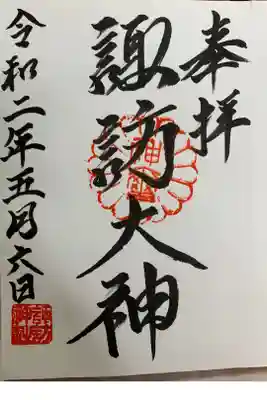 奉拝
諏訪大神
令和二年五月六日